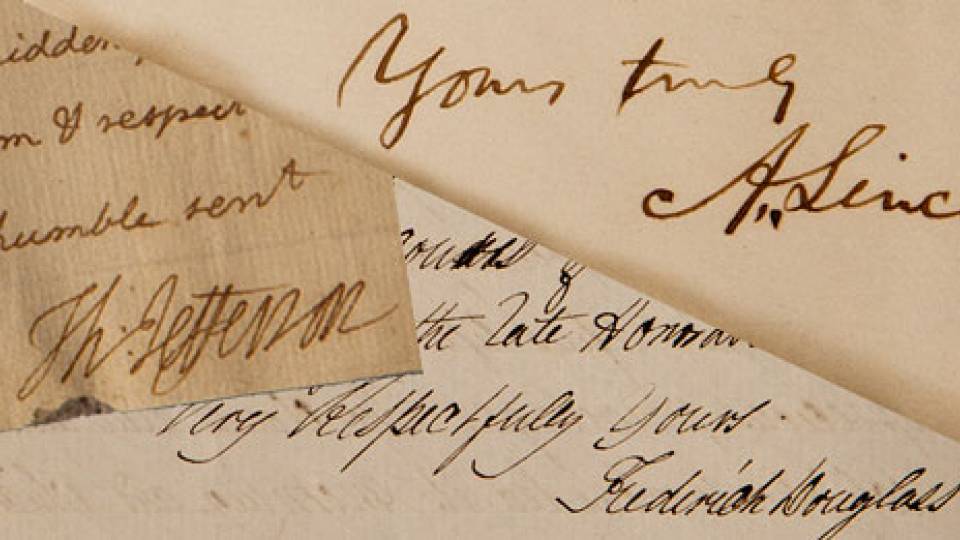 m & respect
humble servt
Th: Jefferson
Yours truly
A. Linc
the late Honora
Very Respectfully Yours
Frederick Douglass